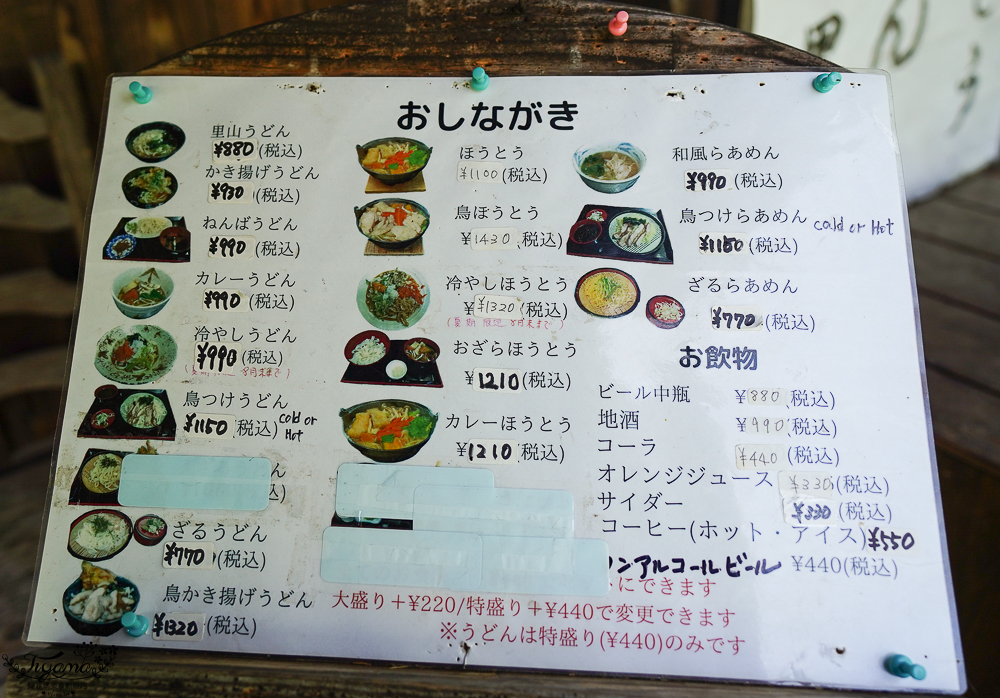 おしながき
里山うどん
¥880(税込)
かき揚げうどん
¥930(税込)
ねんばうどん
¥990(税込)
カレーうどん
¥990(税込)
冷やしうどん
¥990(税込)
鳥つけうどん
¥1150(税込) cold or Hot
ん
ざるうどん
¥770(税込)
鳥かき揚げうどん
¥1320(税込)
ほうとう
¥1100(税込)
鳥ほうとう
¥1430(税込)
冷やしほうとう
¥¥1320(税込)
(夏期限定 8月末まで)
おざらほうとう
¥1210(税込)
カレーほうとう
¥1210(税込)
和風らあめん
¥990(税込)
鳥つけらあめん cold or Hot
¥1150(税込)
ざるらあめん
¥770(税込)
お飲物
ビール中瓶 ¥880(税込)
地酒 ¥990(税込)
コーラ ¥440(税込)
オレンジジュース ¥330(税込)
サイダー ¥330(税込)
コーヒー(ホット・アイス)¥550
ノンアルコールビール ¥440(税込)
にできます
大盛り＋¥220/特盛り＋¥440で変更できます
※うどんは特盛り(¥440)のみです